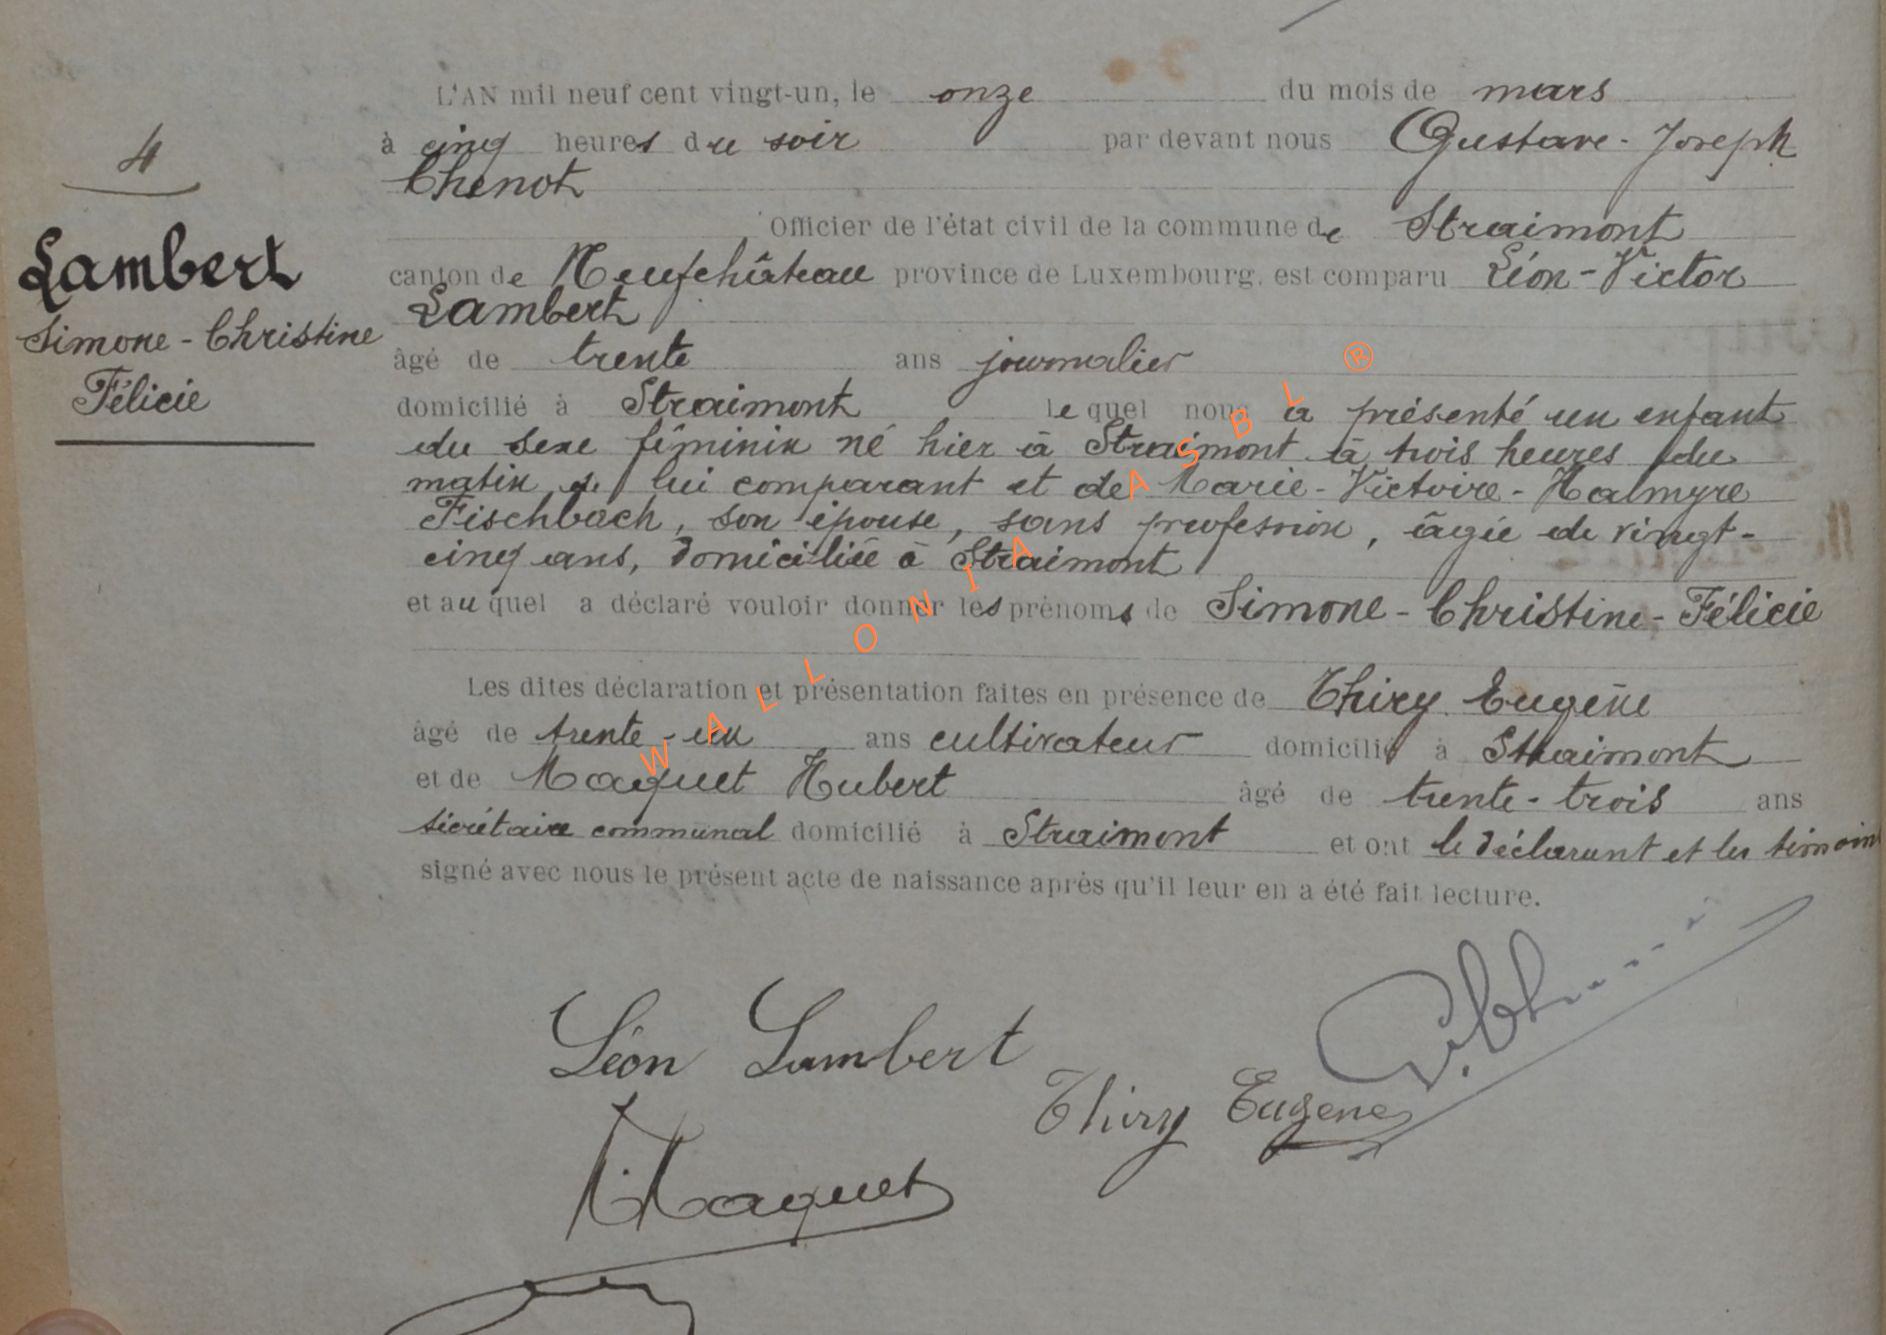 4
Lambert
Simone-Christine
Félicie
L'AN mil neuf cent vingt-un, le onze du mois de mars
à cinq heures du soir par devant nous Gustave-Joseph
Chenot
Officier de l'état civil de la commune de Straimont
canton de Neufchâteau province de Luxembourg, est comparu Léon-Victor
Lambert
âgé de trente ans journalier
domicilié à Straimont lequel nous a présenté un enfant
du sexe féminin né hier à Straimont à trois heures du
matin de lui comparant et de Marie-Victoire-Halmyre
Fischbach, son épouse, sans profession, âgée de vingt-
cinq ans, domiciliée à Straimont
et auquel a déclaré vouloir donner les prénoms de Simone-Christine-Félicie
Les dites déclaration et présentation faites en présence de Thiry Eugène
âgé de trente-un ans cultivateur domicilié à Straimont
et de Maquet Hubert âgé de trente-trois ans
sécrétaire communal domicilié à Straimont et ont le déclarant et les témoins
signé avec nous le présent acte de naissance après qu'il leur en a été fait lecture.
Léon Lambert
Thiry Eugène
Maquet
WALLONIA ASBL ®